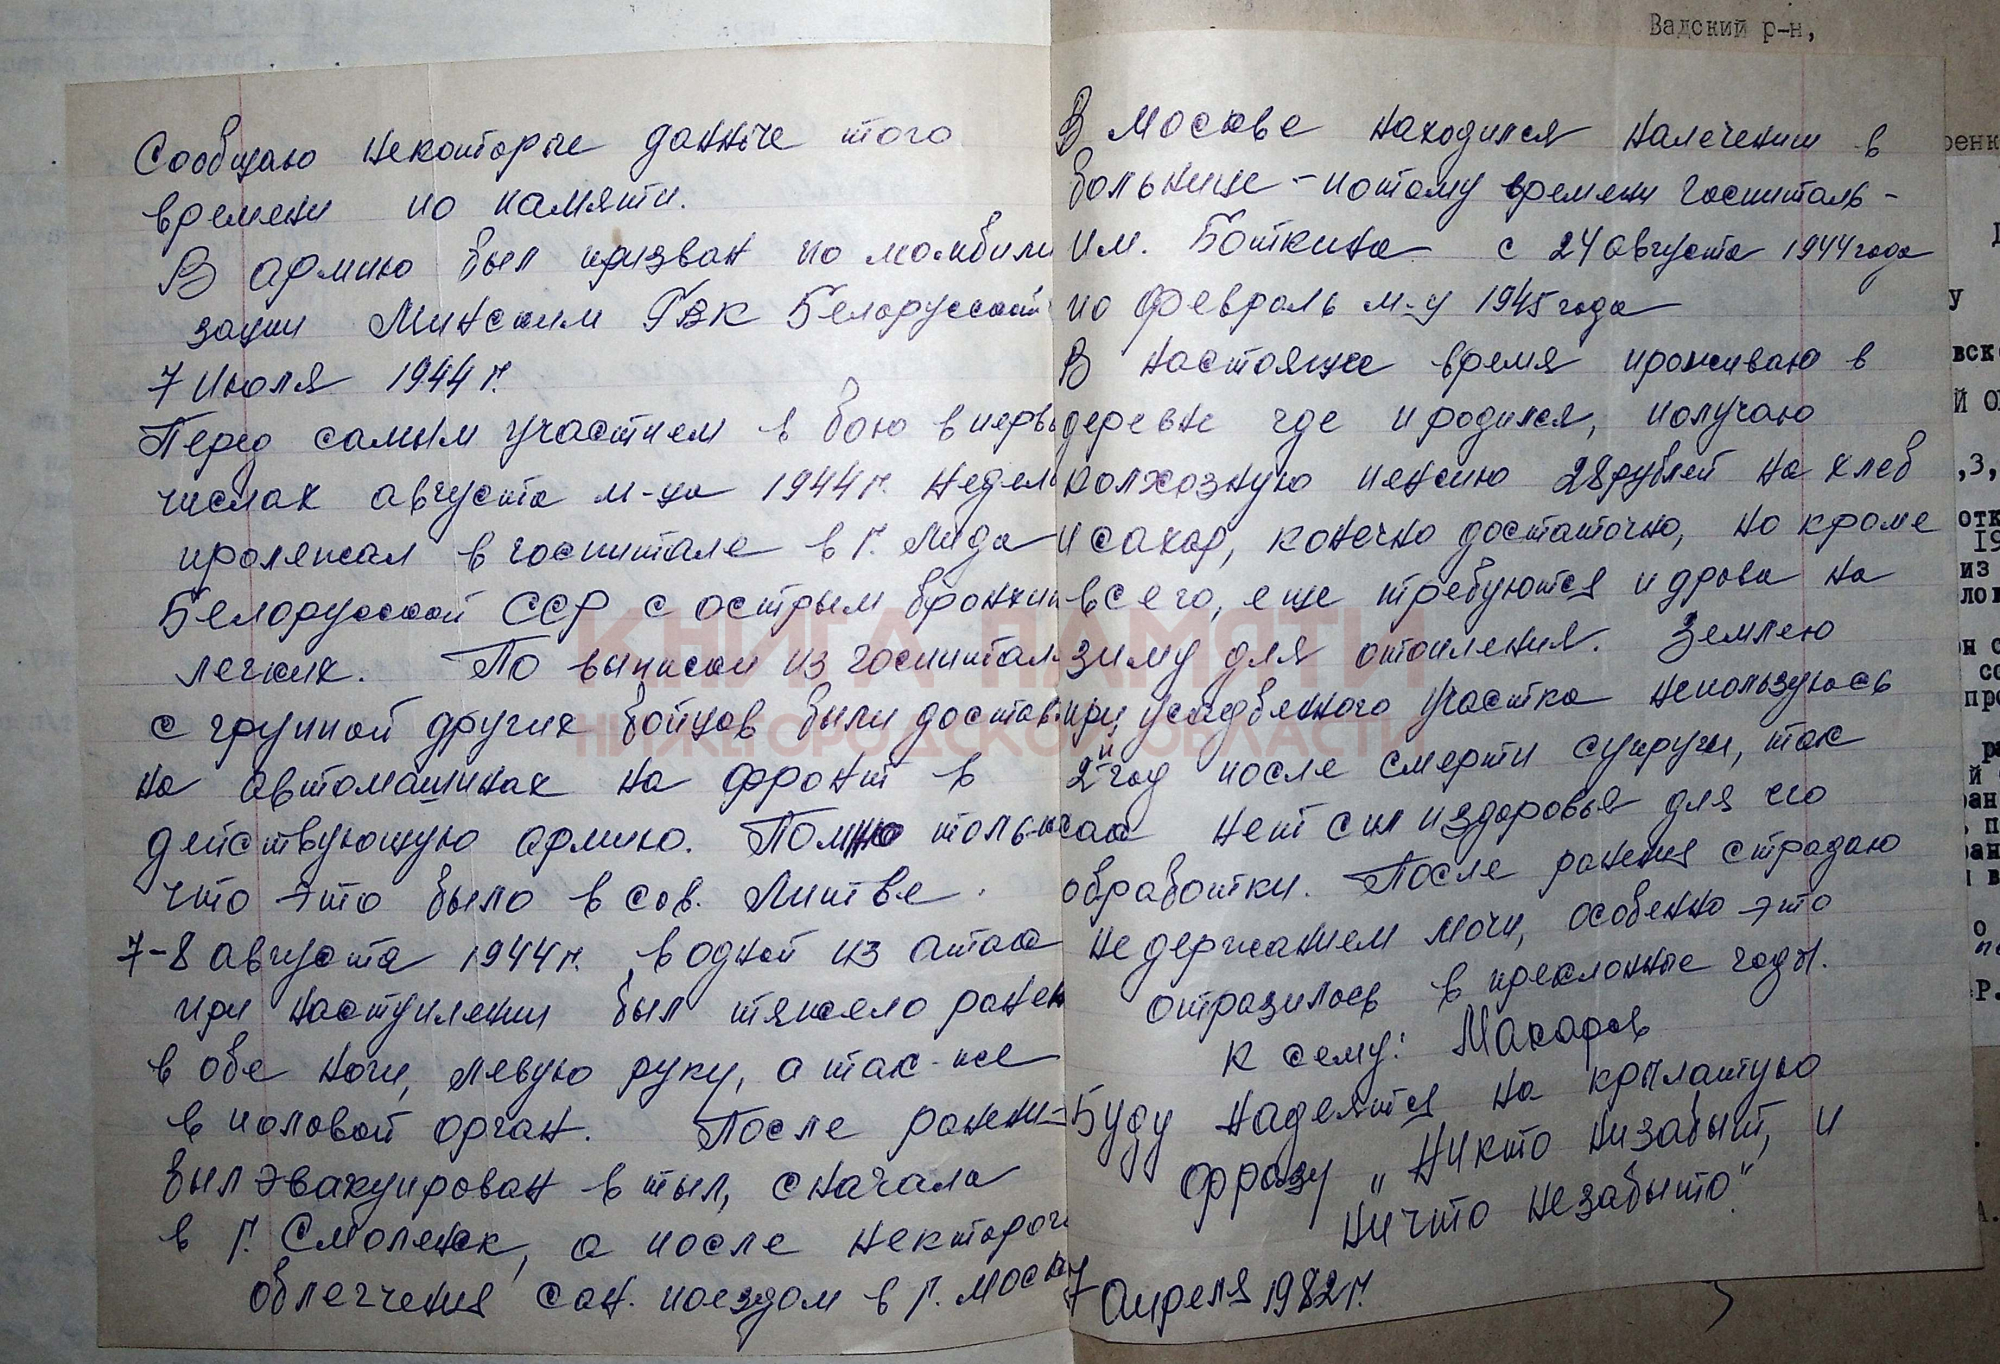 Вадский р-н,
Сообщаю некоторые данные того
времени по памяти.
В армию был призван по мообили
зации Минским ГВК Белорусской
7 июля 1944 г.
Перед самым участием в бою в первы
числах августа м-ца 1944 г. недел
пролежал в госпитале в г. Лида
Белорусской ССР с острым бронхит
легких. По выписки из госпитал
с группой других бойцов были достав
на автомашинах на фронт в
действующую армию. Помню только
что это было в сов. Литве.
7-8 августа 1944 г. в одной из атак
при наступлении был тяжело ранен
в обе ноги, левую руку, а так-же
в половой орган. После ранени-
был эвакуирован в тыл, сначала
в г. Смоленск, а после некторого
облегчения сан. поездом в г. Моск
В Москве находился налечении в
больнице - потому времени госпиталь -
им. Боткина с 24 августа 1944 года
по февраль м-ц 1945 года
В настоящее время проживаю в
деревне где и родился, получаю
колхозную пенсию 28 рублей на хлеб
и сахар, конечно достаточно, но кроме
всего, еще требуются и дрова на
зиму для отопления. Землею
при усадбенного участка непользуюсь
2-й год после смерти супруги, так
как нет сил и здоровья для его
обработки. После ранения страдаю
недержанием мочи, особенно это
отразилось в преклонные годы.
К сему: Макаров
Буду надеятся на крылатую
фразу „Никто низабыт, и
ничто незабыто".
7 Апреля 1982 г.
КНИГА ПАМЯТИ
НИЖЕГОРОДСКОЙ ОБЛАСТИ